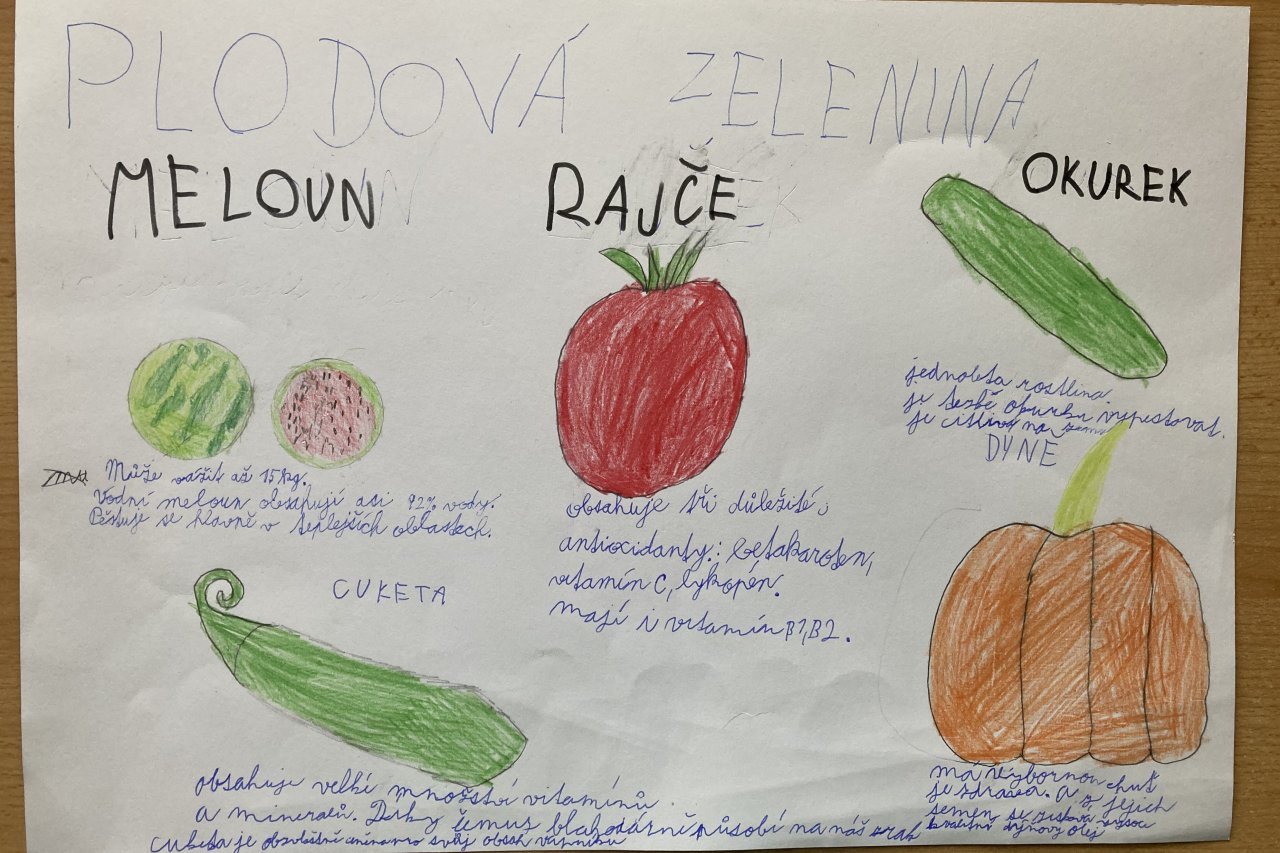 PLODOVÁ ZELENINA
MELOUN
RAJČE
OKUREK
Může vážit až 15kg.
Vodní meloun obsahují asi 92% vody.
Pěstuje se hlavně v teplejších oblastech.
obsahuje tři důležité:
antioxidanty: betakaroten,
vitamín C, lykopén.
mají i vitamín B1, B2.
jednoletá rostlina.
je težbě okurku vypestovat.
je citlivý na
DYNE
má výbornou chuť
je zdravá. a z jejich
semen se získává vysoce
kvalitní dýňový olej
CUKETA
obsahuje velkí množství vitamínů
a minerálů. Díky čemuž blahodárně působí na náš zrak
cuketa je obzvláště svůj obsah vápníku